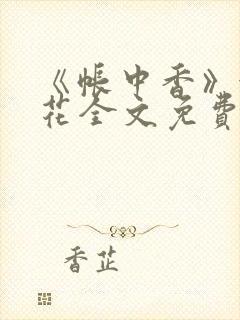 《帳中香》
花全文免費
香芷